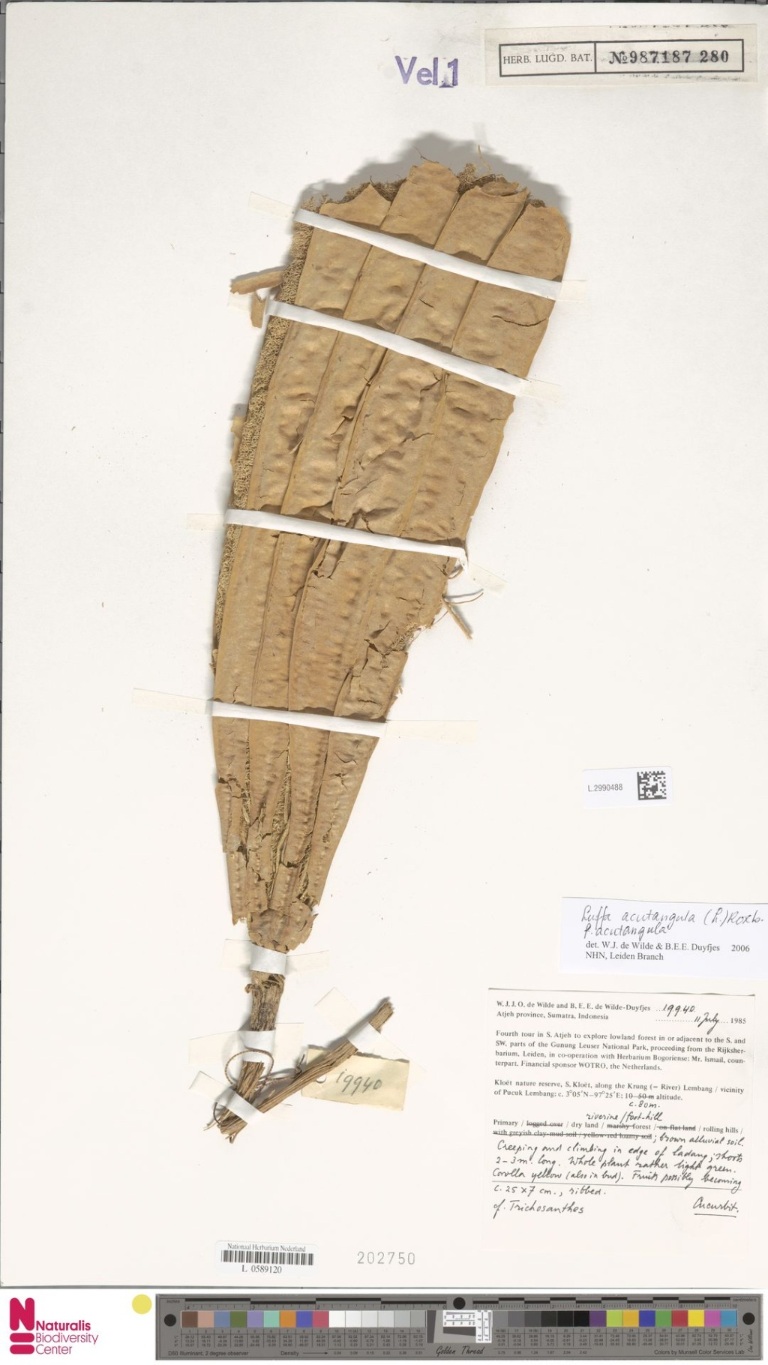 Vel 1
HERB. LUGD. BAT. № 987187 280
L.2990488
Luffa acutangula (L.) Roxb.
f. acutangula
det. W.J. de Wilde & B.E.E. Duyfjes 2006
NHN, Leiden Branch
W. J. J. O. de Wilde and B. E. E. de Wilde-Duyfjes 19940
Atjeh province, Sumatra, Indonesia 11 July 1985
Fourth tour in S. Atjeh to explore lowland forest in or adjacent to the S. and
SW. parts of the Gunung Leuser National Park, proceeding from the Rijksher-
barium, Leiden, in co-operation with Herbarium Bogoriense: Mr. Ismail, coun-
terpart. Financial sponsor WOTRO, the Netherlands.
Kloët nature reserve, S. Kloët, along the Krung (= River) Lembang / vicinity
of Pucuk Lembang; c. 3°05'N–97°25'E; 10–50 m altitude.
c. 80 m.
riverine / foot-hill
Primary / logged-over / dry land / marshy forest / on flat land / rolling hills /
with greyish clay-mud soil / yellow-red loamy soil; brown alluvial soil
Creeping and climbing in edge of ladang; shoots
2-3 m. long. Whole plant rather light green.
Corolla yellow (also in bud). Fruits possibly becoming
c. 25 x 7 cm., ribbed.
cf. Trichosanthes Cucurbit.
19940
Nationaal Herbarium Nederland
L 0589120
202750
Naturalis
Biodiversity
Center
Golden Thread
Colors by Munsell Color Services Lab